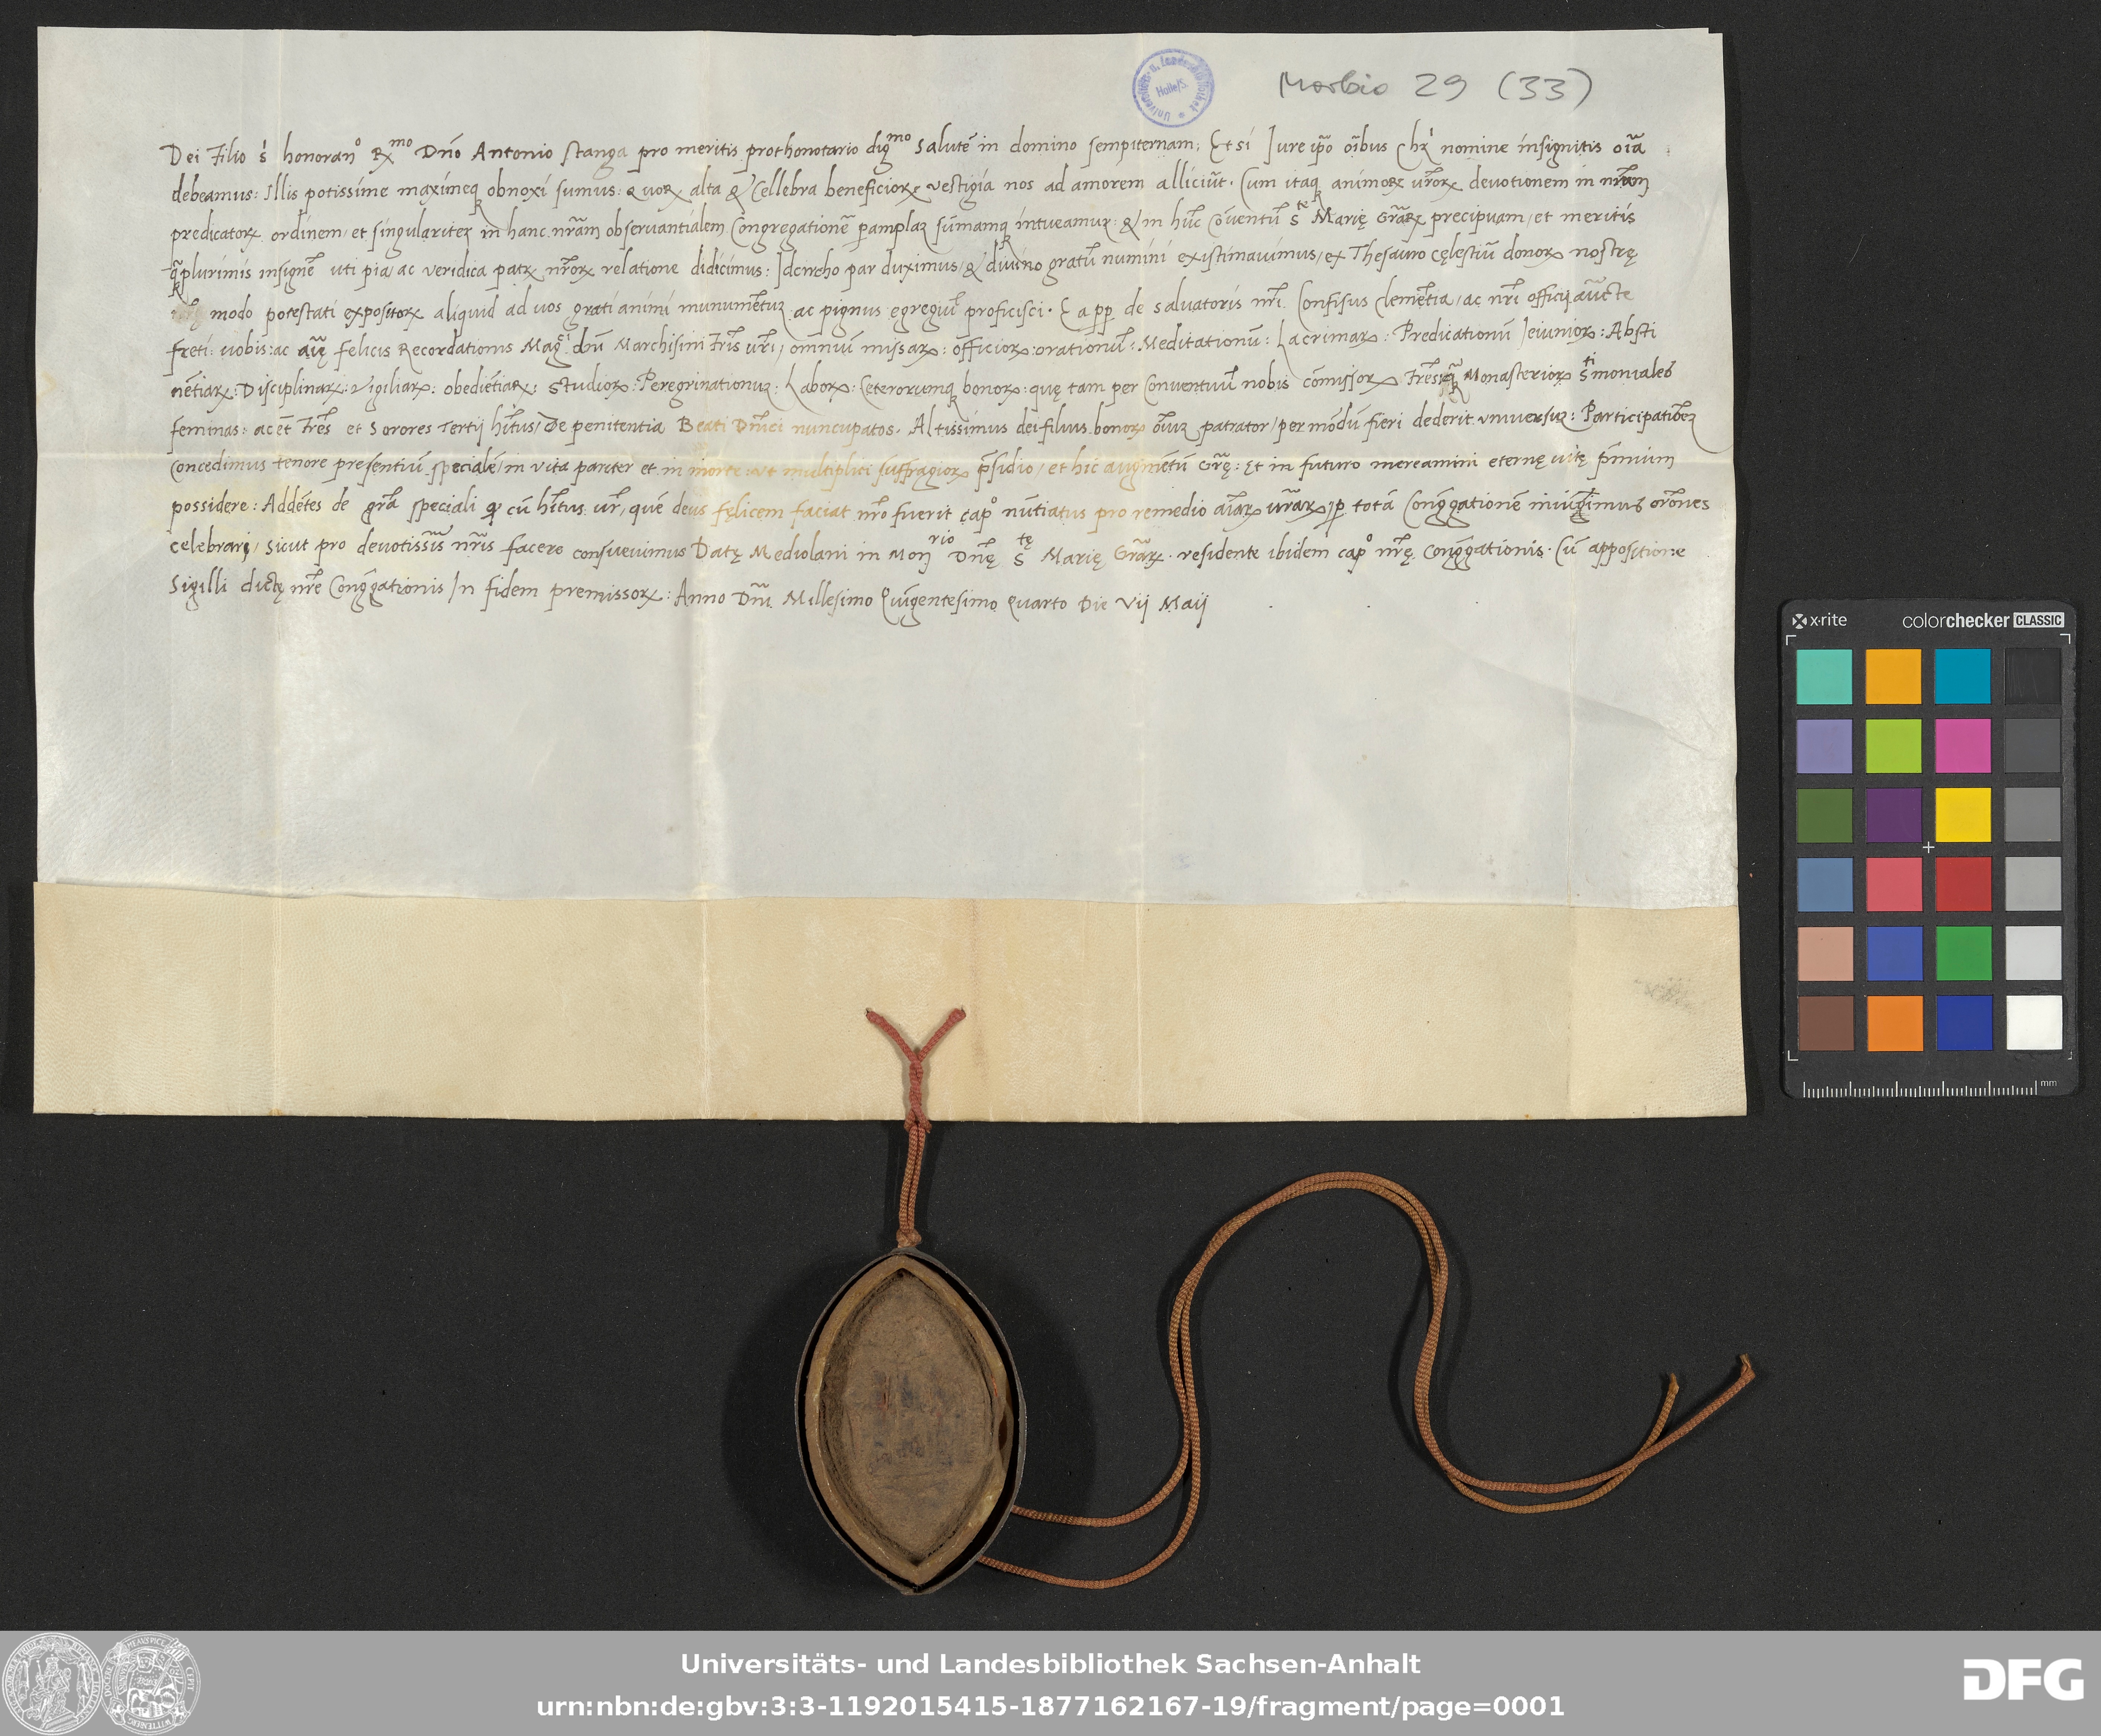 Morbio 29 (33)
Universitäts- u. Landesbibliothek
Halle/S.
Dei Filio s̓ honoran° Rx̄mo Dn̄o Antonio stanga pro meritis prothonotario diḡmo Salutē in domino sempiternam; Etsi Jure ip̄o oībus chr̄i nomine insignitis oīa
debeamus: Illis potissime maximeqꝫ obnoxi sumus: quorꝝ alta & Cellebra beneficiorꝝ vestigia nos ad amorem alliciūt. Cum itaqꝫ animorꝝ vr̄orꝝ deuotionem in nr̄am
predicatorꝝ ordinem, et singulariter in hanc nr̄am obseruantialem Congregationē pamplaꝫ sūmamqꝫ intueamur: & in hūc cōuentū Ste Marię Grāꝝ precipuam, et meritis
q̄plurimis insignē uti pia, ac veridica patrꝝ nr̄orꝝ relatione didicimus: Idcircho par duximus, & diuino gratū numini existimauimus, ex Thesauro cęlestiū donorꝝ nostrę
modo potestati expositorꝝ aliquid ad uos grati animi munumētuꝫ ac pignus egregiū proficisci. Ea pp̄ de saluatoris nr̄i Confisus clemētia, ac nr̄i officij aūcte
freti: uobis: ac felicis Recordationis Maḡci dn̄i Marchisini Fr̄is ur̄i, omniū missarꝝ: officiorꝝ: orationū: Meditationū: Lacrimarꝝ: Predicationū Jeiuniorꝝ: Absti
nētiarꝝ: Disciplinarꝝ: vigiliarꝝ: obediētiarꝝ: Studiorꝝ: Peregrinationuꝫ: Laborꝝ: Ceterorumqꝫ bonorꝝ: quę tam per Conuentuū nobis cōmissorꝝ Fr̄es Monasteriorꝝ S̄timoniales
feminas: ac et̄ Fr̄es et Sorores Tertij hītus, De penitentia Beati Dn̄ici nuncupatos. Altissimus dei filius bonorꝝ oīuꝫ patrator, per mōdū fieri dederit vniuersuꝫ: Participationeꝫ
Concedimus tenore presentiū specialē, in vita pariter et in morte: vt multiplici suffragiorꝝ p̄sidio, et hic augmētū Grę̄: Et in futuro mereamini eternę uitę p̄mium
possidere: Addētes de grā speciali qꝫ cū hītus ur̄, quē deus fęlicem faciat nr̄o fuerit cap° nūtiatus pro remedio aīarꝝ ur̄arꝝ, p totā Congḡationē iniūgimus or̄ones
celebrari, sicut pro deuotissīs nr̄is facere consueuimus Datę Mediolani in Monrio Dn̄ę Stę Marię Grāꝝ. residente ibidem cap° nr̄ę congḡationis. Cū appositione
Sigilli dictę nr̄e Congḡationis In fidem premissorꝝ: Anno Dn̄i Millesimo Quīgentesimo quarto Die Vij Maij
x·rite colorchecker CLASSIC
mm
Universitäts- und Landesbibliothek Sachsen-Anhalt
urn:nbn:de:gbv:3:3-1192015415-1877162167-19/fragment/page=0001
DFG